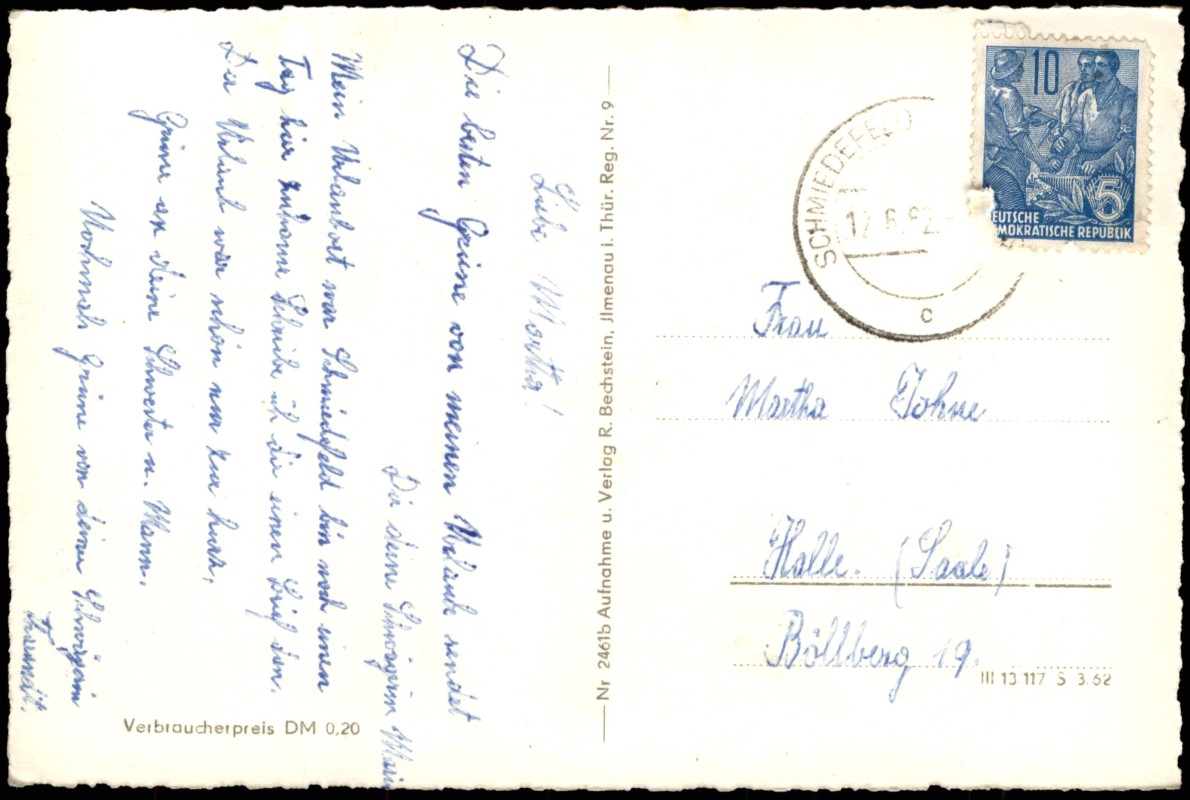 Liebe Martha!
Die besten Grüsse von meinen Urlaub sendet
Dir deine Schwägerin Marie
Mein Urlaubort war Schmiedefeld bin noch einen
Tag hier zuhause schreibe ich dir einen Brief den.
Der Urlaub war schön nur zu kurz.
Grüsse an deine Schwester u. Mann.
Nochmals Grüsse von deiner Schwägerin
Verbraucherpreis DM 0,20
Nr 2461b Aufnahme u. Verlag R. Bechstein, Jlmenau i. Thür. Reg. Nr. 9
SCHMIEDEFELD
12.6.62
c
10
5
DEUTSCHE
DEMOKRATISCHE REPUBLIK
Frau
Martha Johne
Halle. (Saale)
Böllberg 19.
III 13 117 S 3.62